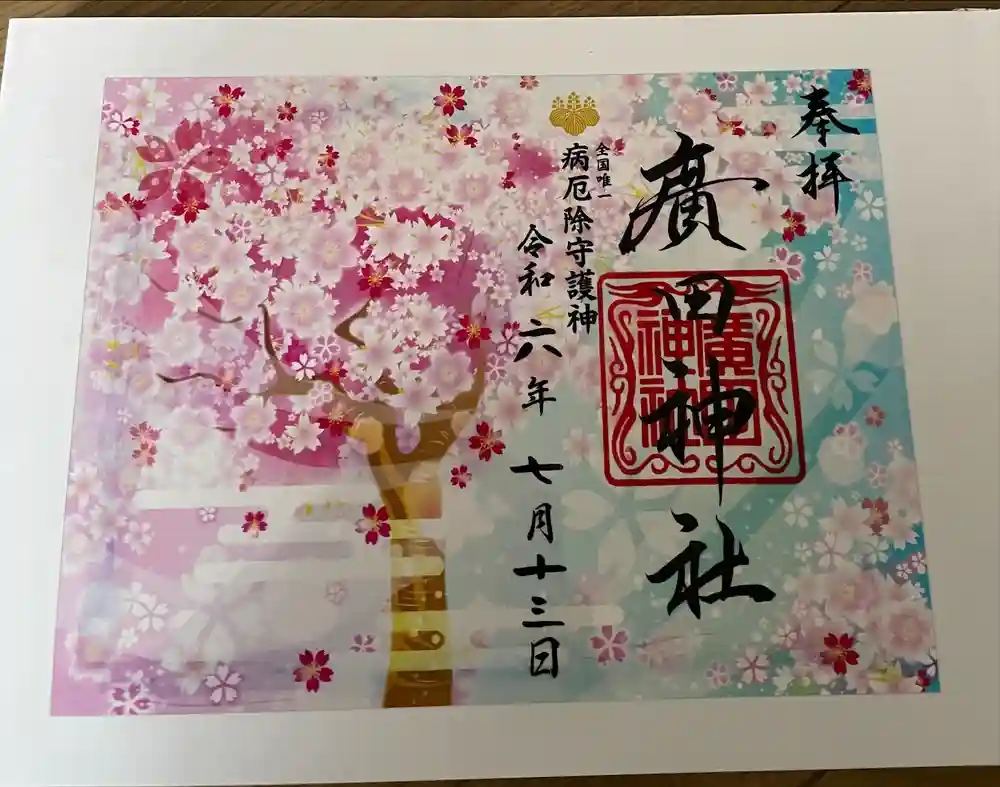 奉拝
廣田神社
廣田
神社
全国唯一
病厄除守護神
令和六年七月十三日